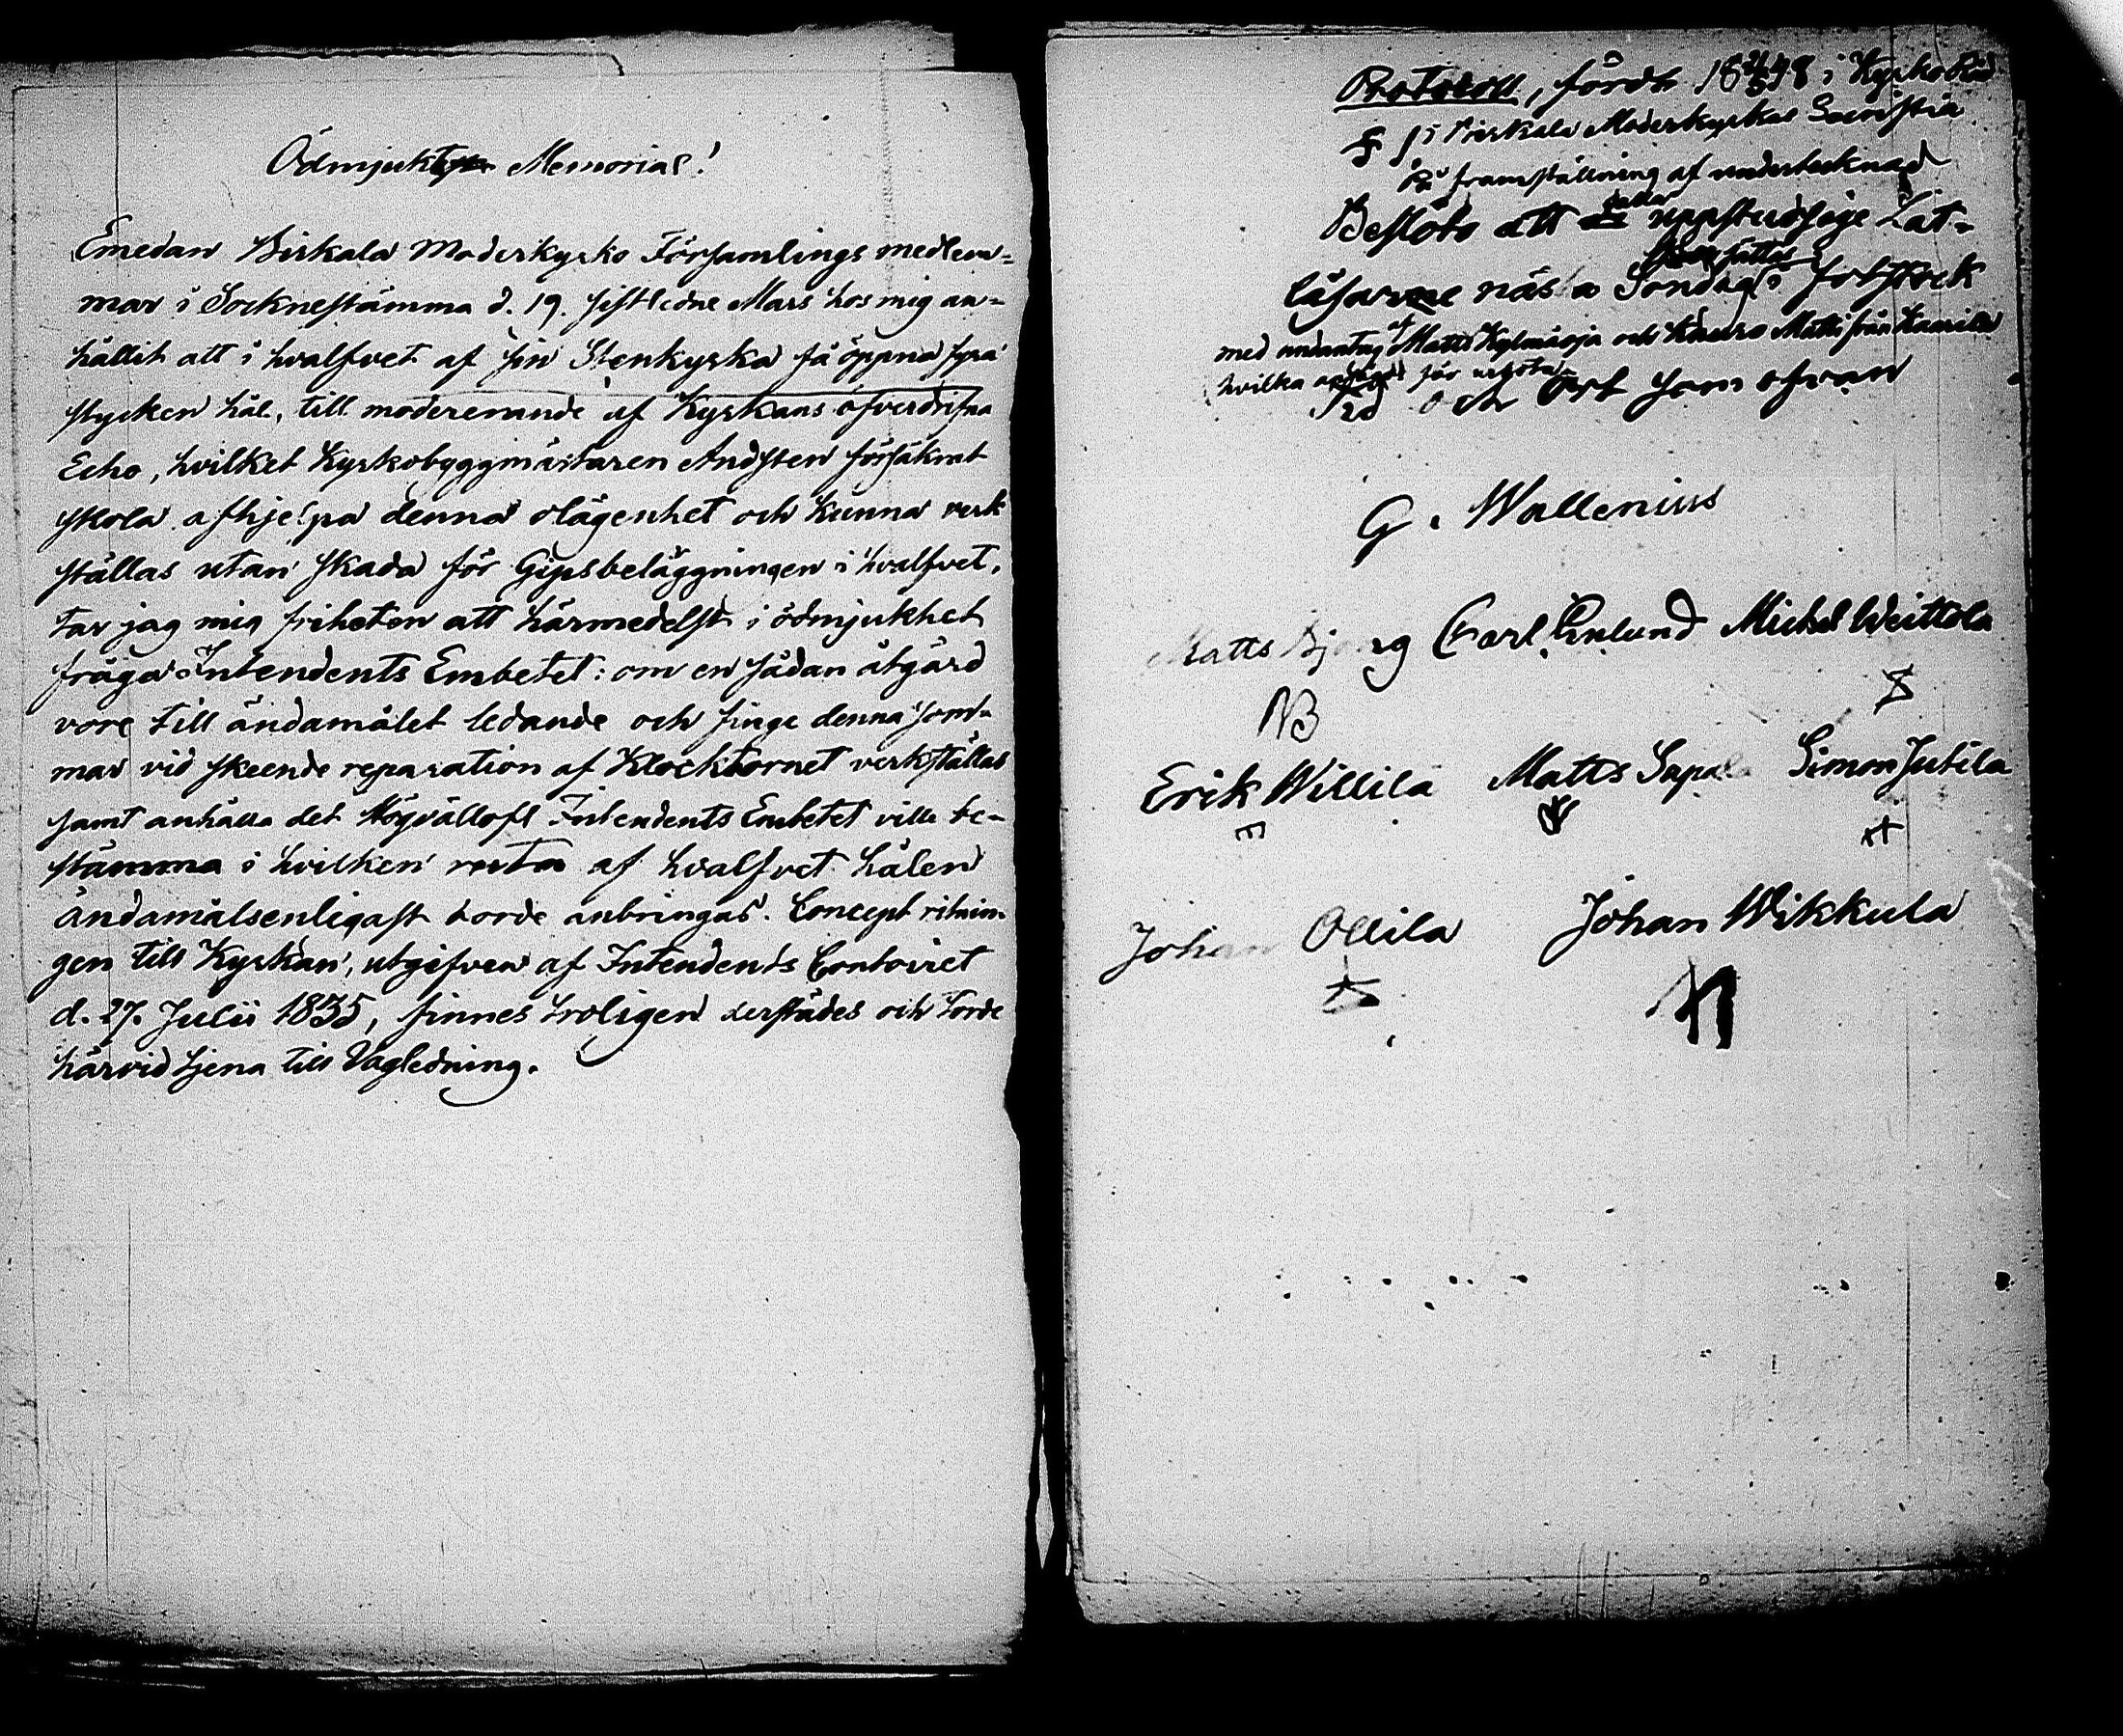 Ödmjukt Memorial!
Emedan Birkala Moderkyrko Församlings medlem-
mar i Socknestämma d. 19. sistledne Mars hos mig an-
hållit att i hvalfvet af sin Stenkyrka få öppna fyra
stycken hål, till modererande af Kyrkans öfverdrifna
Echo, hvilket Kyrkobyggmästaren Andsten försäkrat
skola afhjelpa denna olägenhet och kunna verk
ställas utan skada för Gipsbeläggningen i hvalfvet,
tar jag mig friheten att härmedelst i ödmjukhet
fråga Intendents Embetet: om en sådan åtgärd
vore till ändamålet ledande och finge denna som-
mar vid skeende reparation af Klocktornet verkställas
samt anhålla det Högvällofl Intendents Embetet ville be-
stämma i hvilken ruta af hvalfvet hålen
ändamålsenligast torde anbringas. Concept ritnin-
gen till Kyrkan, utgifven af Intendents Contoiret
d. 27. Julii 1835, finnes troligen derstädes och torde
härvid tjena till Vägledning.
Protocoll, fördt 18 48 i Kyrko Råd
i Birkala Moderkyrkas Sacristia
På framställning af undertecknad
Beslöts att uppstudsige Lät-
läsarne nästa Söndag i fotstock
med undantag af Matts Kylmäoja och Knuro Matti från Kaarila
hvilka för urbota
År och Ort som ofvan
G. Wallenius
Matts Bjong Carl Enlund Michel Weittola
NB
Erik Willilä Matts Sapala Simon Jutila
Johan Ollila Johan Wikkula